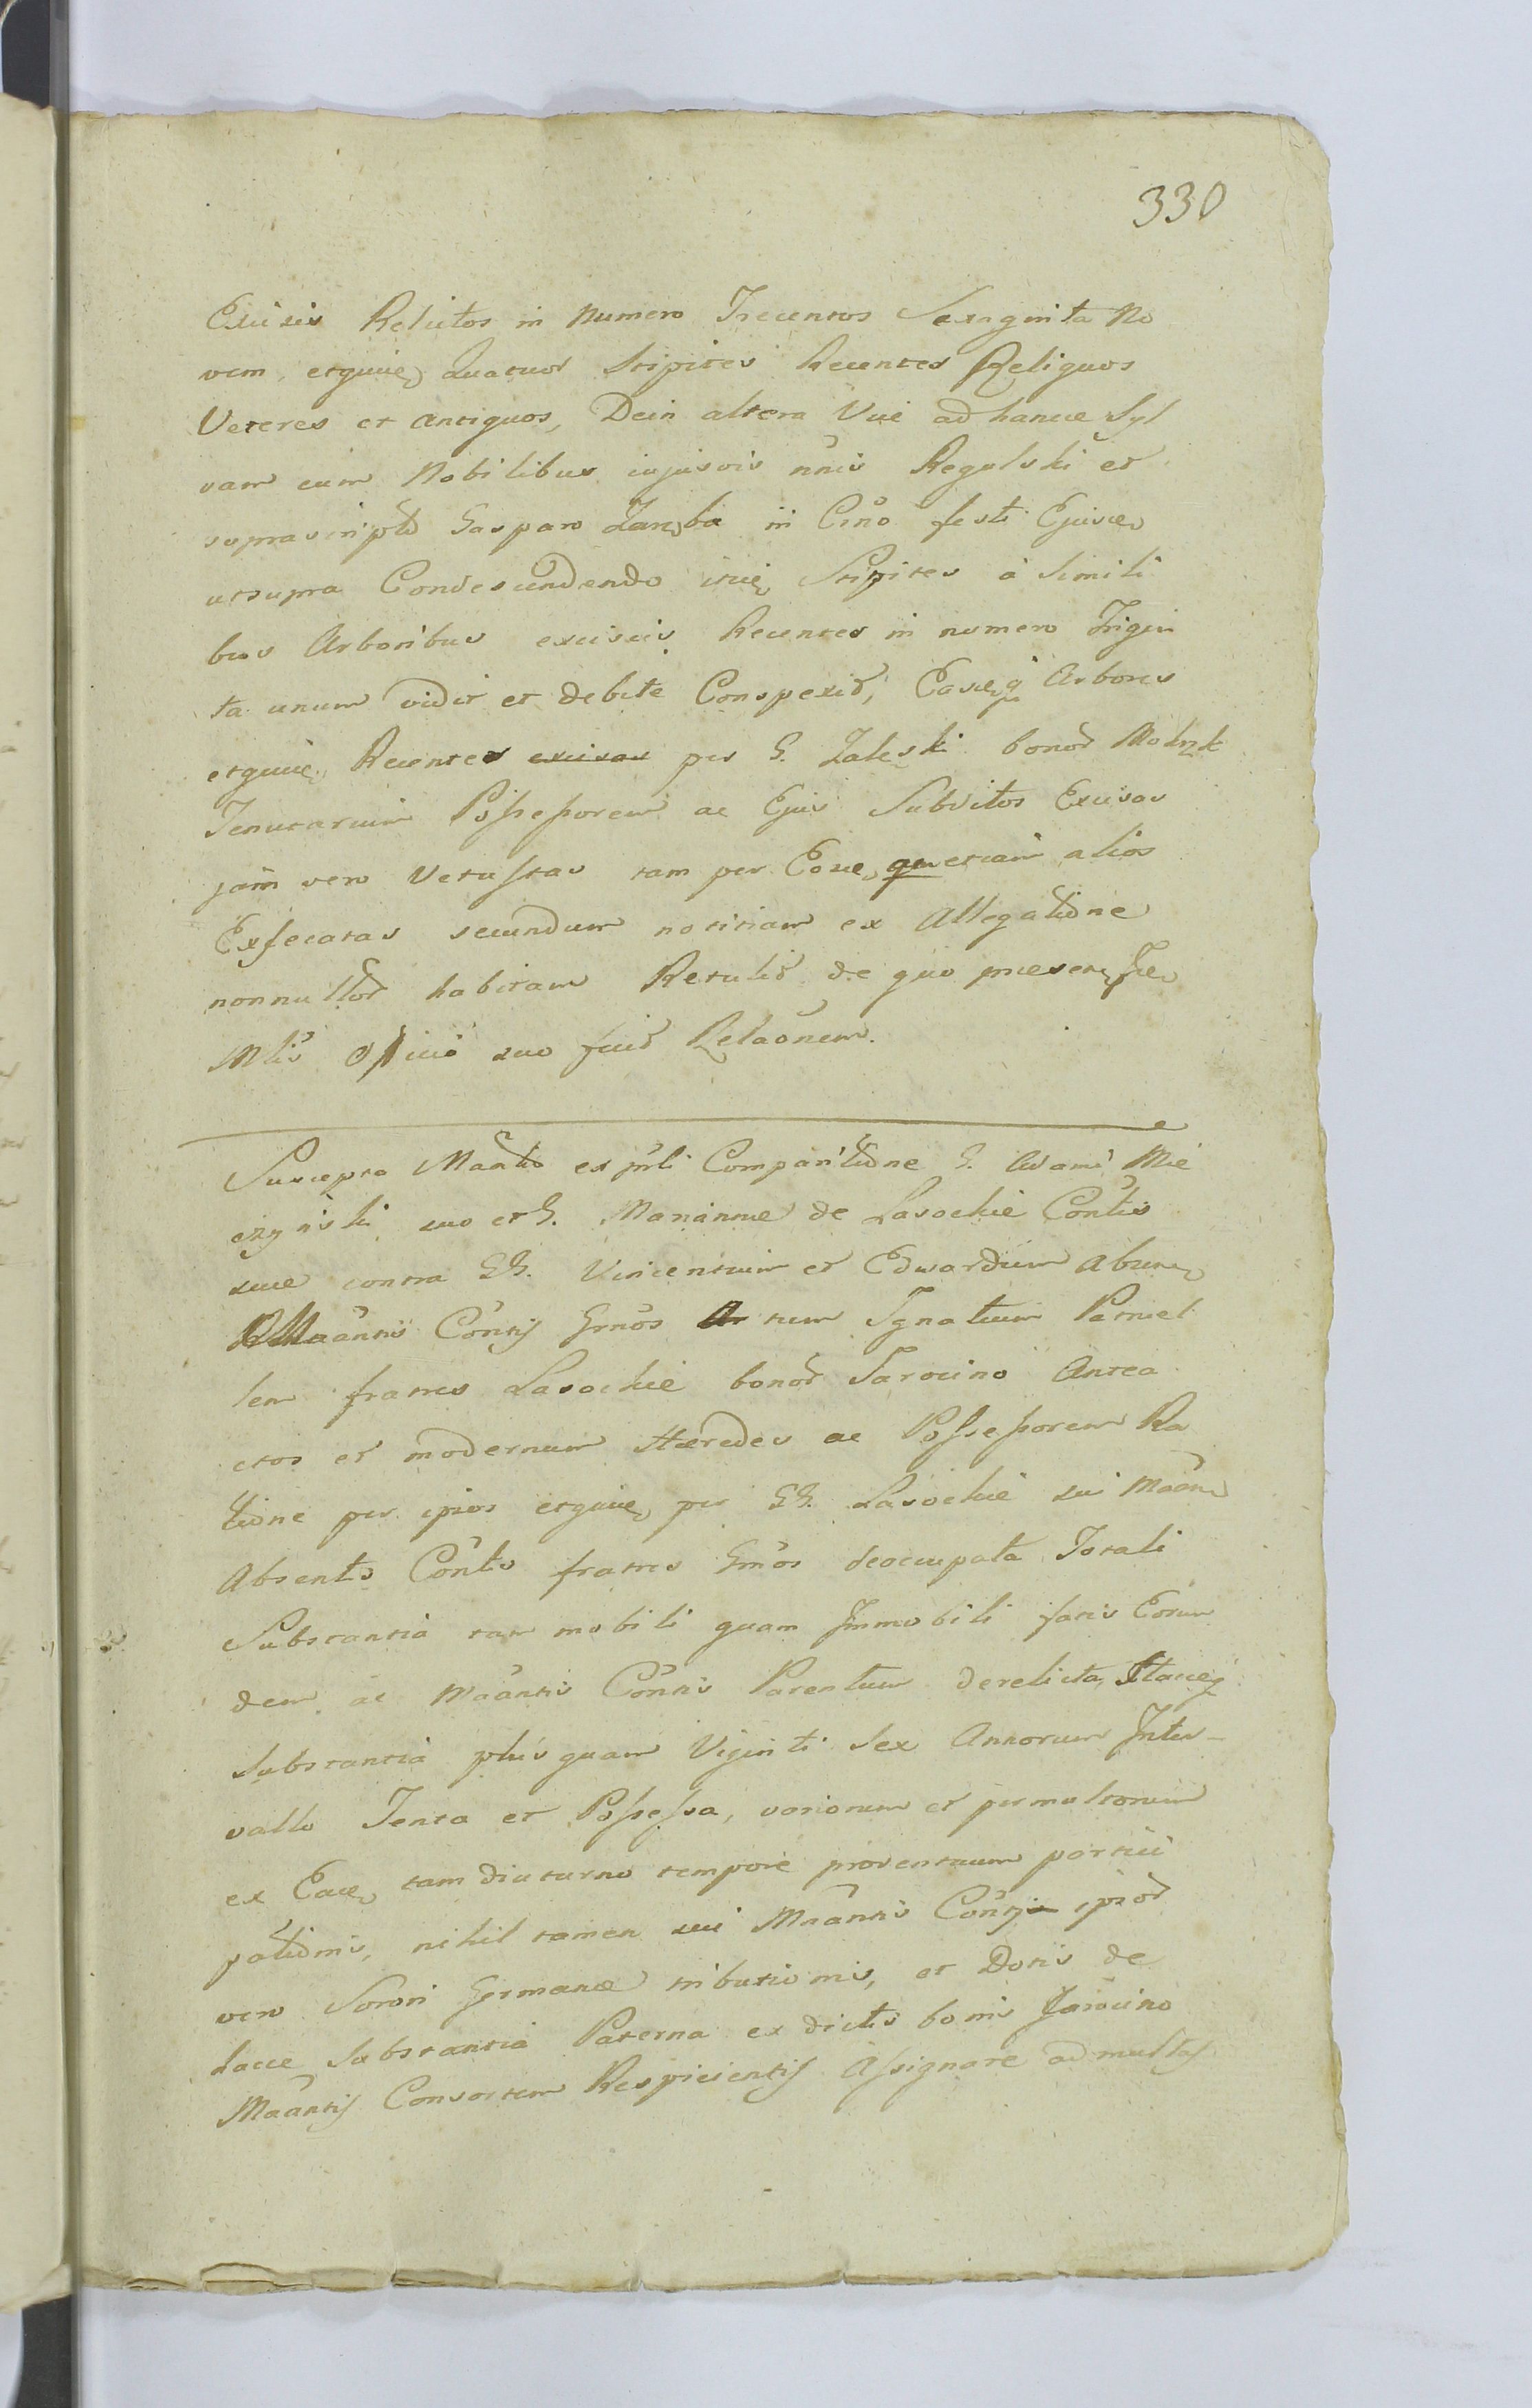 330
Excisis Relictos in Numero Trecentos Sexaginta No
vem, Quatuor Stipites Recentes Reliquos
Veteres et antiquos, Dein altera Vice ad Syl
vam cum Nobilibus cujusvis Regulski et
Gasparo in Cino festi
utsupra Condescendendo Stipites à Simili
bus Arboribus excisis Recentes in numero Trigin
ta unum vidit et debite Conspexit, Arbores
Recentes excisas per G. Zaleski bonor
Tenutarium Possessorem ac Ejus Subditos Excisas
jam vero Vetustas tam per etiam alios
Exsecatas secundum notitiam ex Allegatione
nonnullor habitam Retulit de quo
Officio suo fecit Relaonem.
Suscepto ex Comparitione G. Adami Mie
czynski suo et G. Mariannæ de Lasockie Contis
suæ contra GG. Vincentium et Edwardum
Maantis Contis Grnos tum Ignatium Patruel
lem fratres Lasockie bonor Jarocino Antea
ctos et modernum Hæredes ac Possessorem Ra
tione per ipsos per GG. Lasockie sui
Absentis Contis fratres Grnos deoccupata Totali
Substantia tam mobili quam Immobili fatis Eorun
dem ac Maantis Contis Parentum derelicta,
Substantia plusquam Viginti Sex Annorum Inter-
vallo Tenta et Possessa, variorum et permultorum
ex tam diuturno tempore proventuum partici
pationis, nihil tamen sui Maantis ipsor
vero Sorori Germanæ tributionis, et Dotis de
Substantia Paterna ex dictis bonis Jarocino
Maantis Consortem Respicientis Assignare ad multas